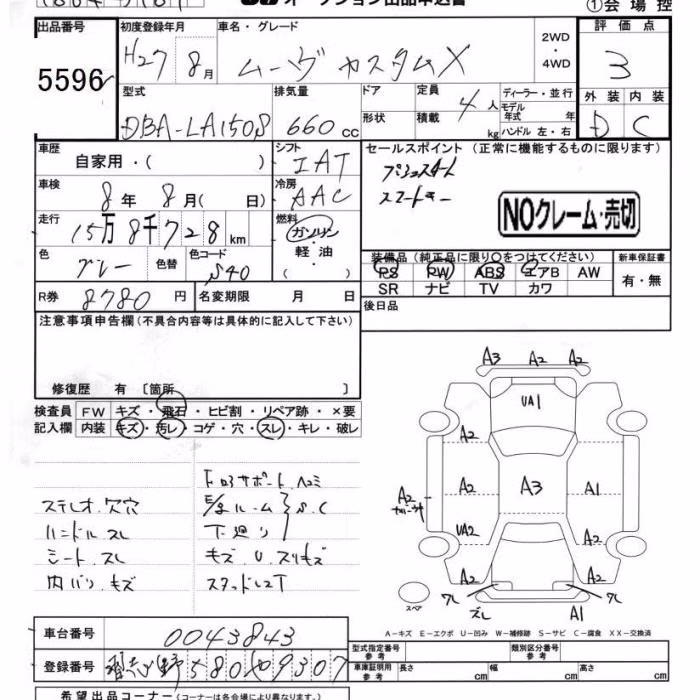 ①会場控
出品番号 初度登録年月 車名・グレード 2WD・4WD 評価点
5596 H27 8月 ムーヴ カスタムX 3
型式 排気量 ドア 定員 ディーラー・並行 外装 内装
DBA-LA150S 660cc 形状 積載 4人 kg モデル年式 年 ハンドル 左・右 D C
車歴 自家用・( ) シフト IAT セールスポイント (正常に機能するものに限ります)
プッシュスタート
スマートキー
車検 8年 8月( 日) 冷房 AAC NOクレーム・売切
走行 15万8千728km 燃料 ガソリン・軽油・( )
色 グレー 色替 色コード S40
装備品 (純正品に限り○をつけてください) 新車保証書
PS PW ABS エアB AW 有・無
SR ナビ TV カワ
R券 8780円 名変期限 月 日 後日品
注意事項申告欄 (不具合内容等は具体的に記入して下さい)
修復歴 有 〔箇所 〕
検査員 FW キズ・飛石・ヒビ割・リペア跡・×要
記入欄 内装 キズ・汚レ・コゲ・穴・スレ・キレ・破レ
ステレオ.欠穴
ハンドル スレ 下廻り
シート.スレ キズ.U.スリキズ
内バリ.キズ スタッドレスT
A3 A2 A2
UA1
A2
A2 A3 A1
A2
UA2 A2
A2 A2
ワレ ワレ
スペア スレ A1
A-キズ E-エクボ U-凹み W-補修跡 S-サビ C-腐食 XX-交換済
車台番号 0043843
型式指定番号 参考 類別区分番号 参考
登録番号 習志野580 9307
車庫証明用 参考 長さ cm 幅 cm 高さ cm
希望出品コーナー (コーナーは各会場により異なります。)